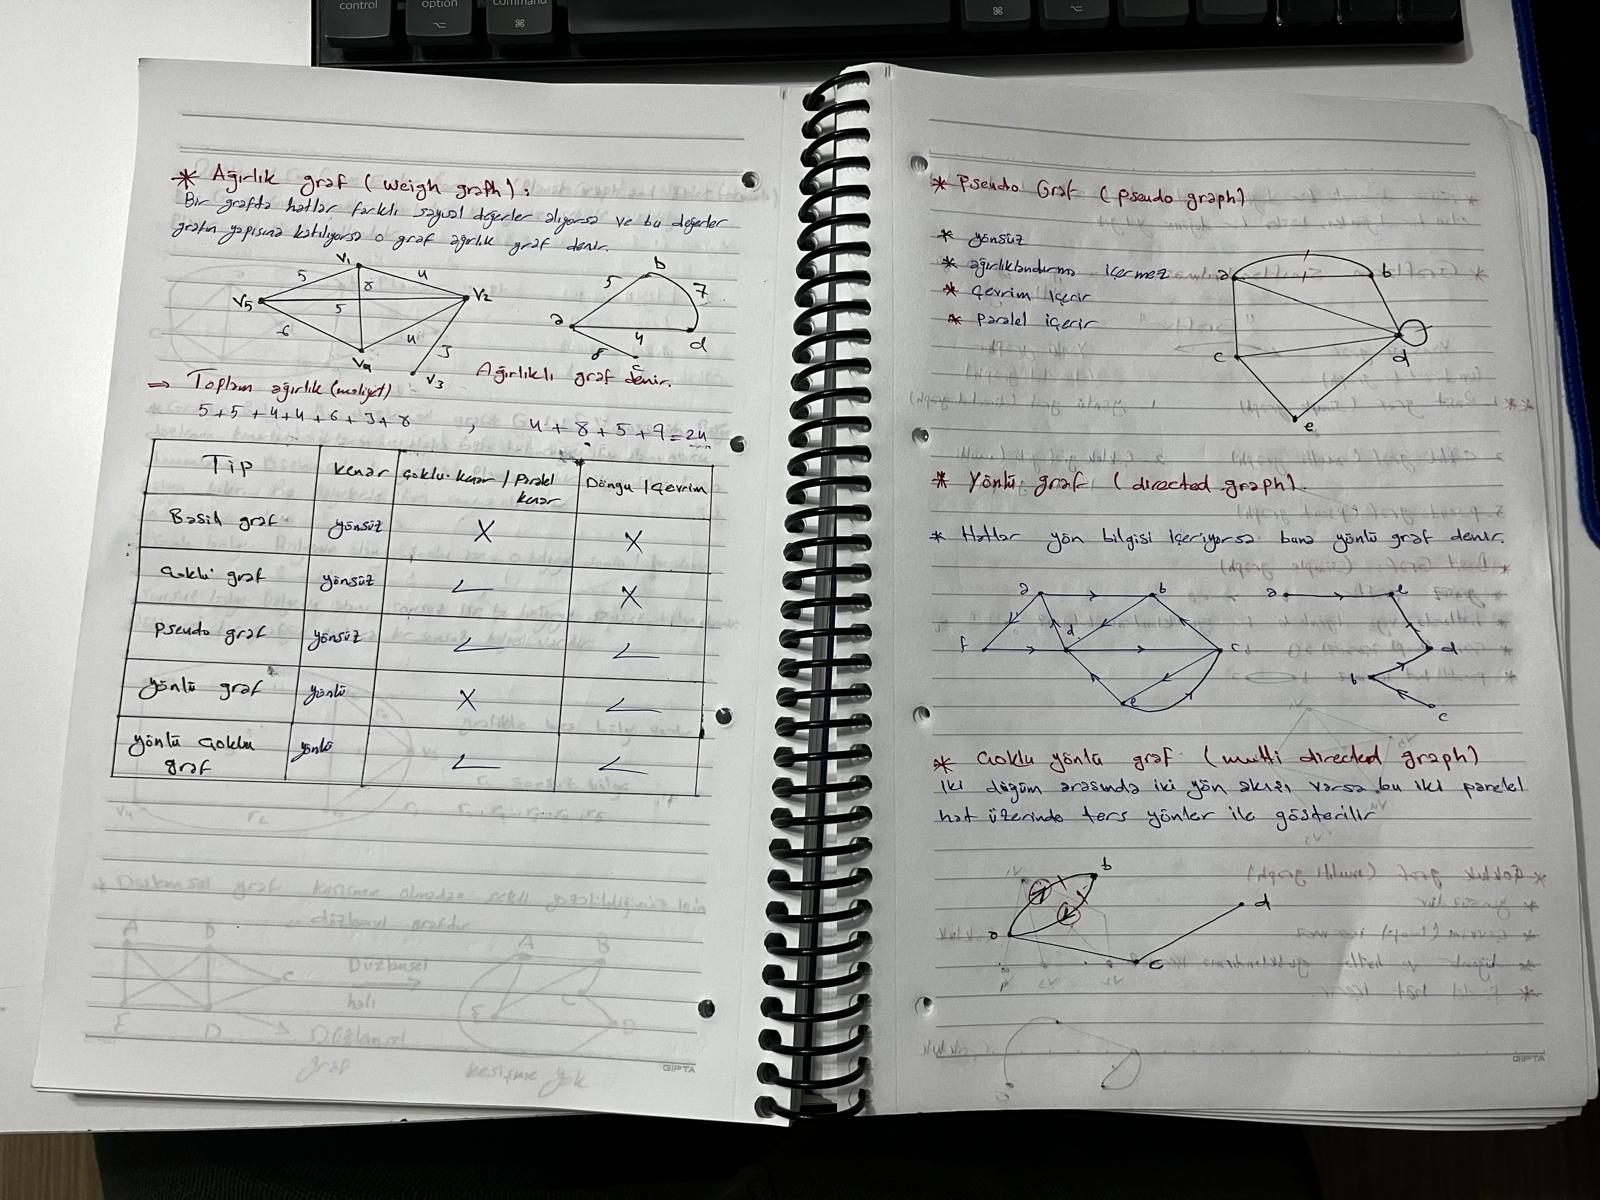 control
option
⌥
command
⌘
⌘
⌥
* Ağırlık graf (weigh graph):
Bir grafta hatlar farklı sayısal değerler alıyorsa ve bu değerler
grafın yapısına katılıyorsa o graf ağırlık graf denir.
V1
5
8
4
V5
5
V2
6
4
3
V4
V3
b
5
7
a
4
d
8
c
Ağırlıklı graf denir.
⇒ Toplam ağırlık (maliyet)
5+5+4+4+6+3+8 , 4+8+5+7=24
Tip
kenar
Çoklu kenar / Paralel kenar
Döngü / Çevrim
Basit graf
yönsüz
X
X
Çoklu graf
yönsüz
X
Pseudo graf
yönsüz
yönlü graf
yönlü
X
yönlü çoklu
graf
yönlü
GIPTA
* Pseudo Graf (pseudo graph)
* yönsüz
* ağırlıklandırma içermez
* Çevrim içerir
* Paralel içerir
a
b
c
d
e
* Yönlü graf (directed graph).
* Hatlar yön bilgisi içeriyorsa buna yönlü graf denir.
a
b
a
e
f
d
c
d
b
e
c
* Çoklu yönlü graf (multi directed graph)
iki düğüm arasında iki yön akışı varsa bu iki paralel
hat üzerinde ters yönler ile gösterilir
b
d
a
c
GIPTA